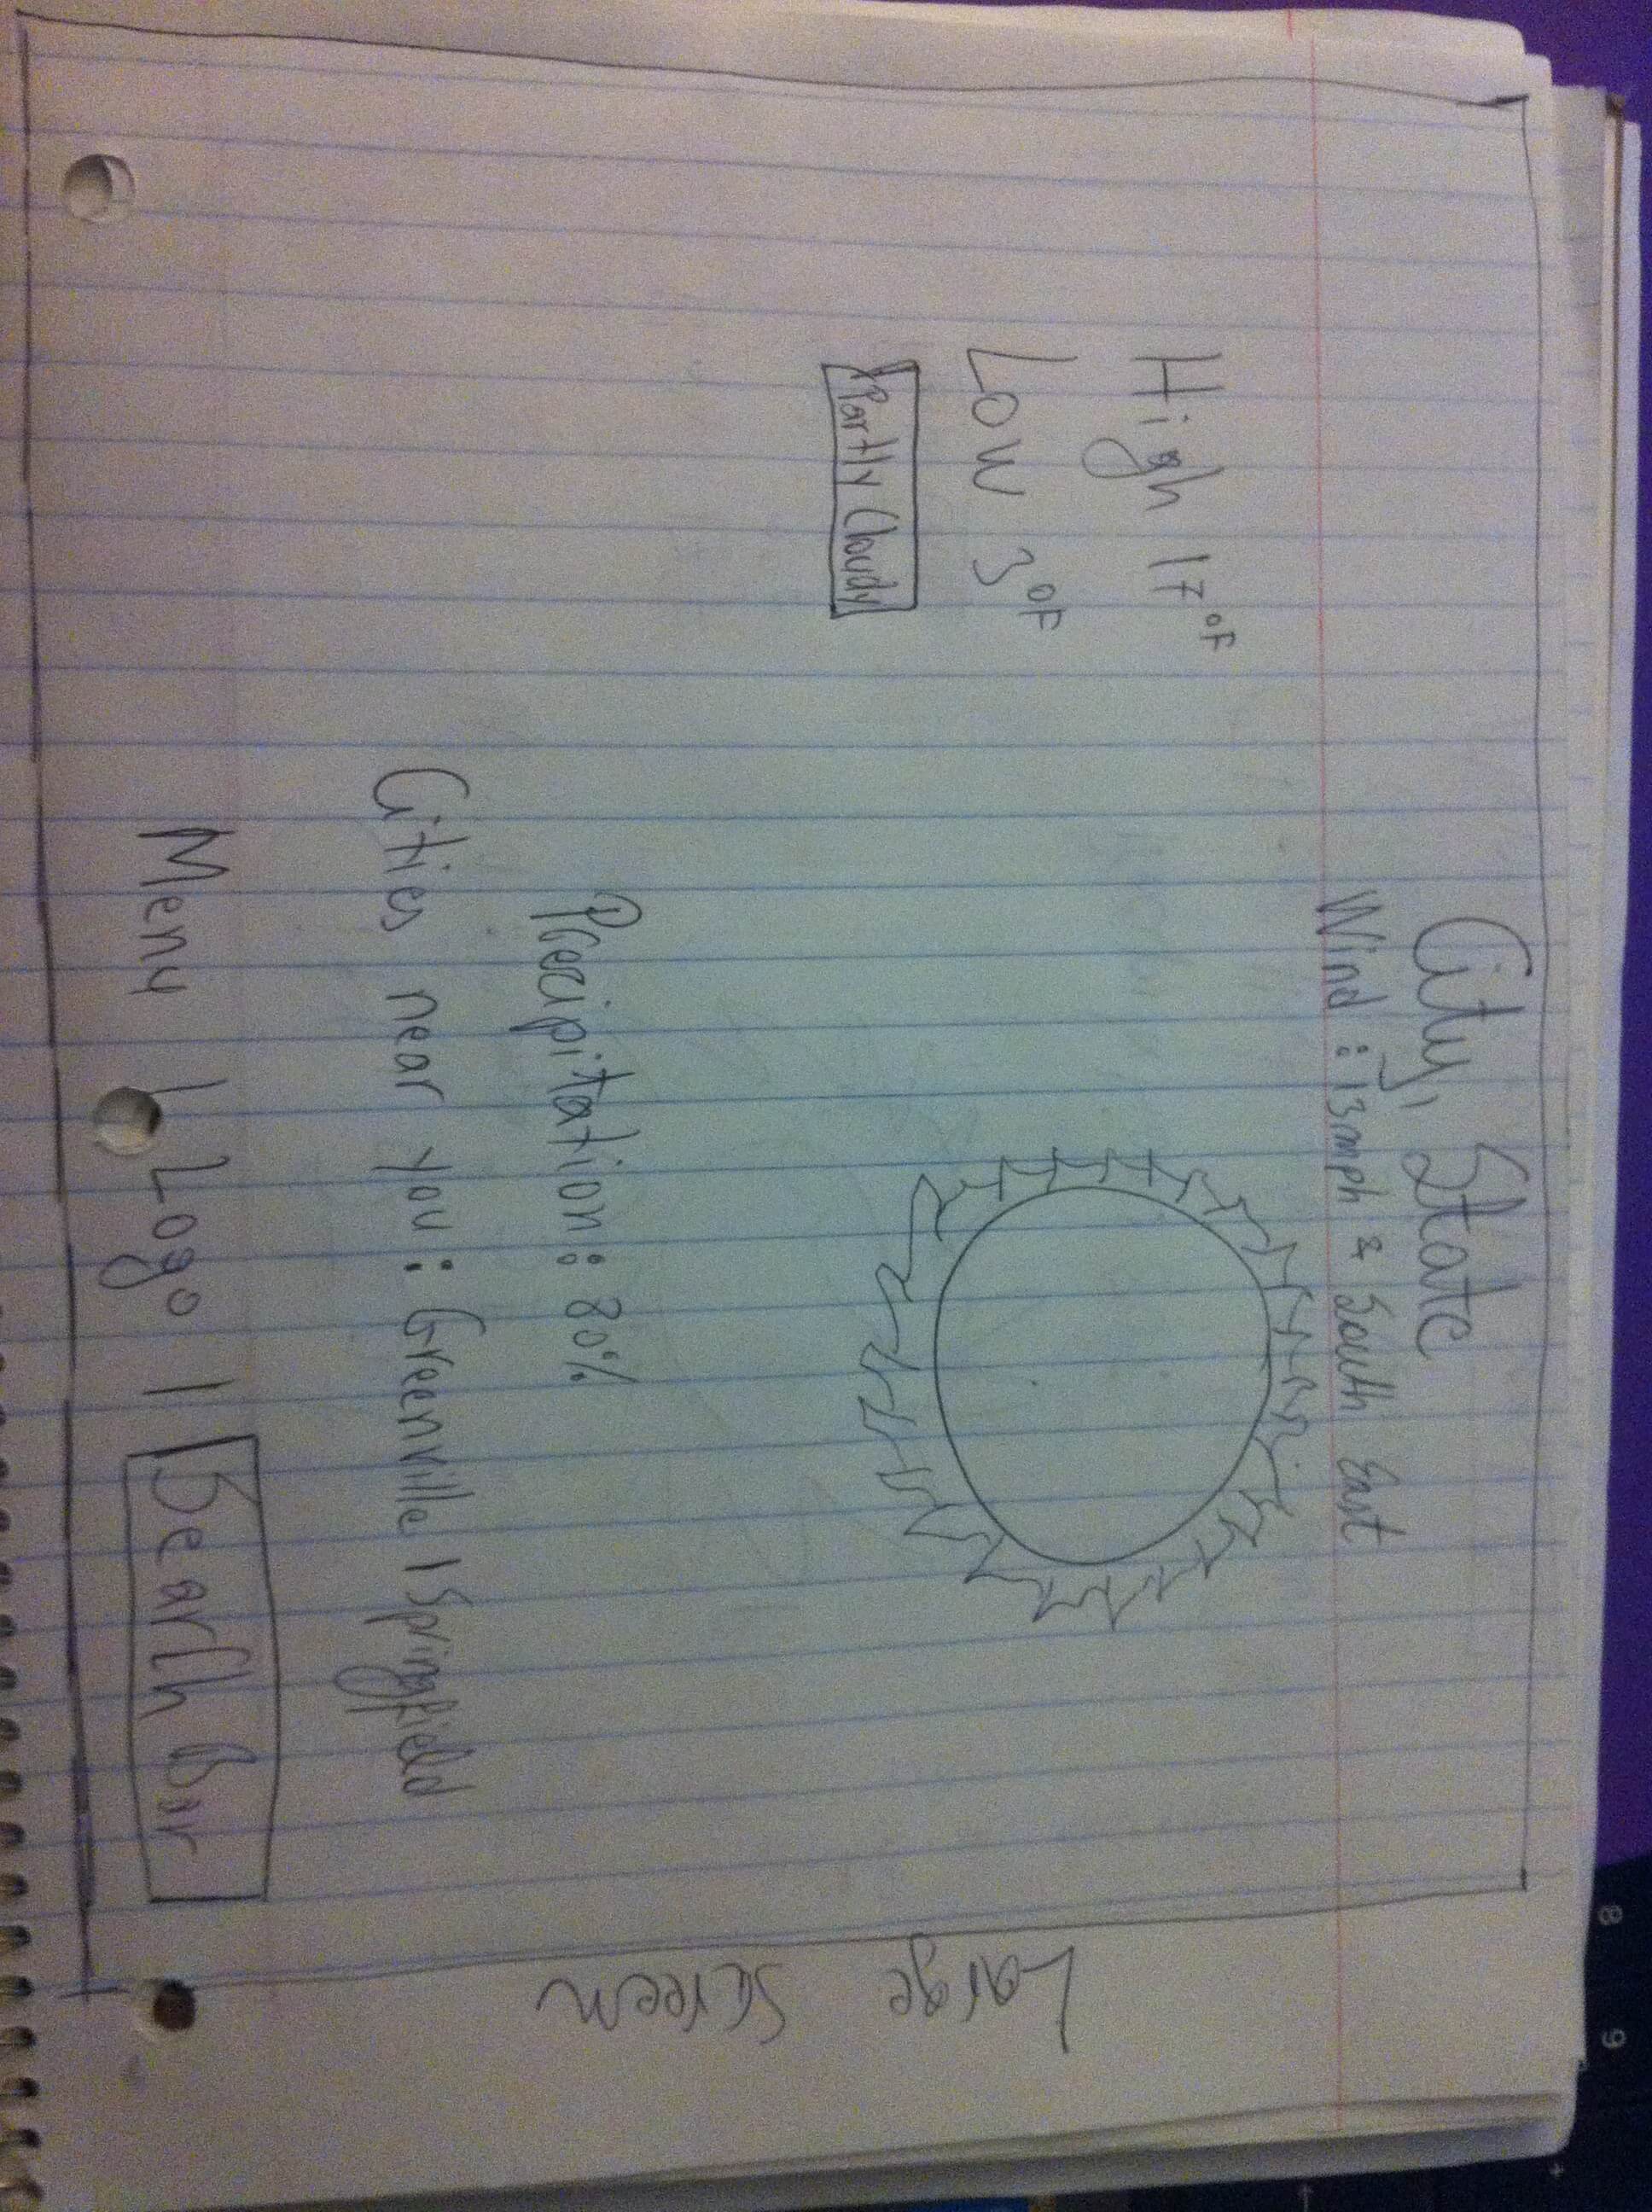 8 9
City, State
Wind : 13mph & South East
High 17°F
Low 3°F
Partly Cloudy
Precipitation: 80%
Cities near you: Greenville | Springfield
Menu | Logo | Search Bar
Large Screen